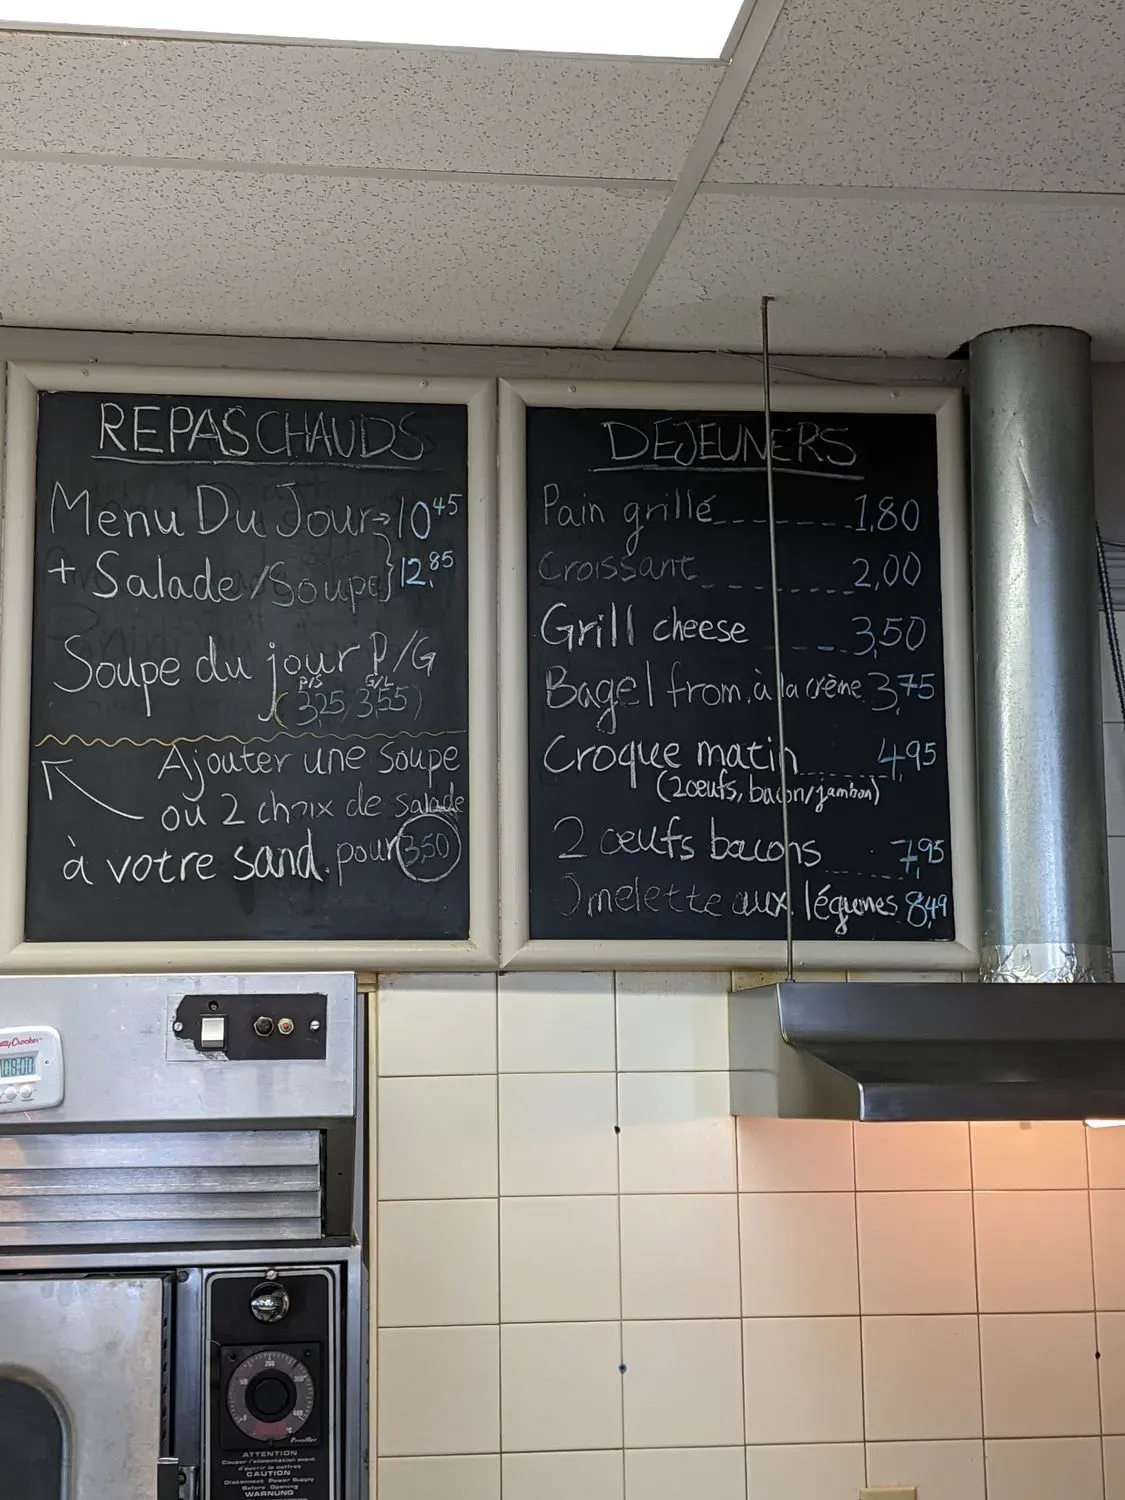 REPAS CHAUDS
Menu Du Jour → 10 45
+ Salade/Soupe } 12,85
Soupe du jour P/G
P/S G/L
(3,25, 3,55)
Ajouter une soupe
ou 2 choix de salade
à votre sand. pour 3,50
DEJEUNERS
Pain grillé 1,80
Croissant 2,00
Grill cheese 3,50
Bagel from. à la crème 3,75
Croque matin 4,95
(2 oeufs, bacon/jambon)
2 œufs bacons 7,95
Omelette aux légumes 8,49
Betty Crocker
08:00
200
ATTENTION
Couper l'alimentation avant
d'ouvrir le coffret
CAUTION
Disconnect Power Supply
Before Opening
WARNUNG